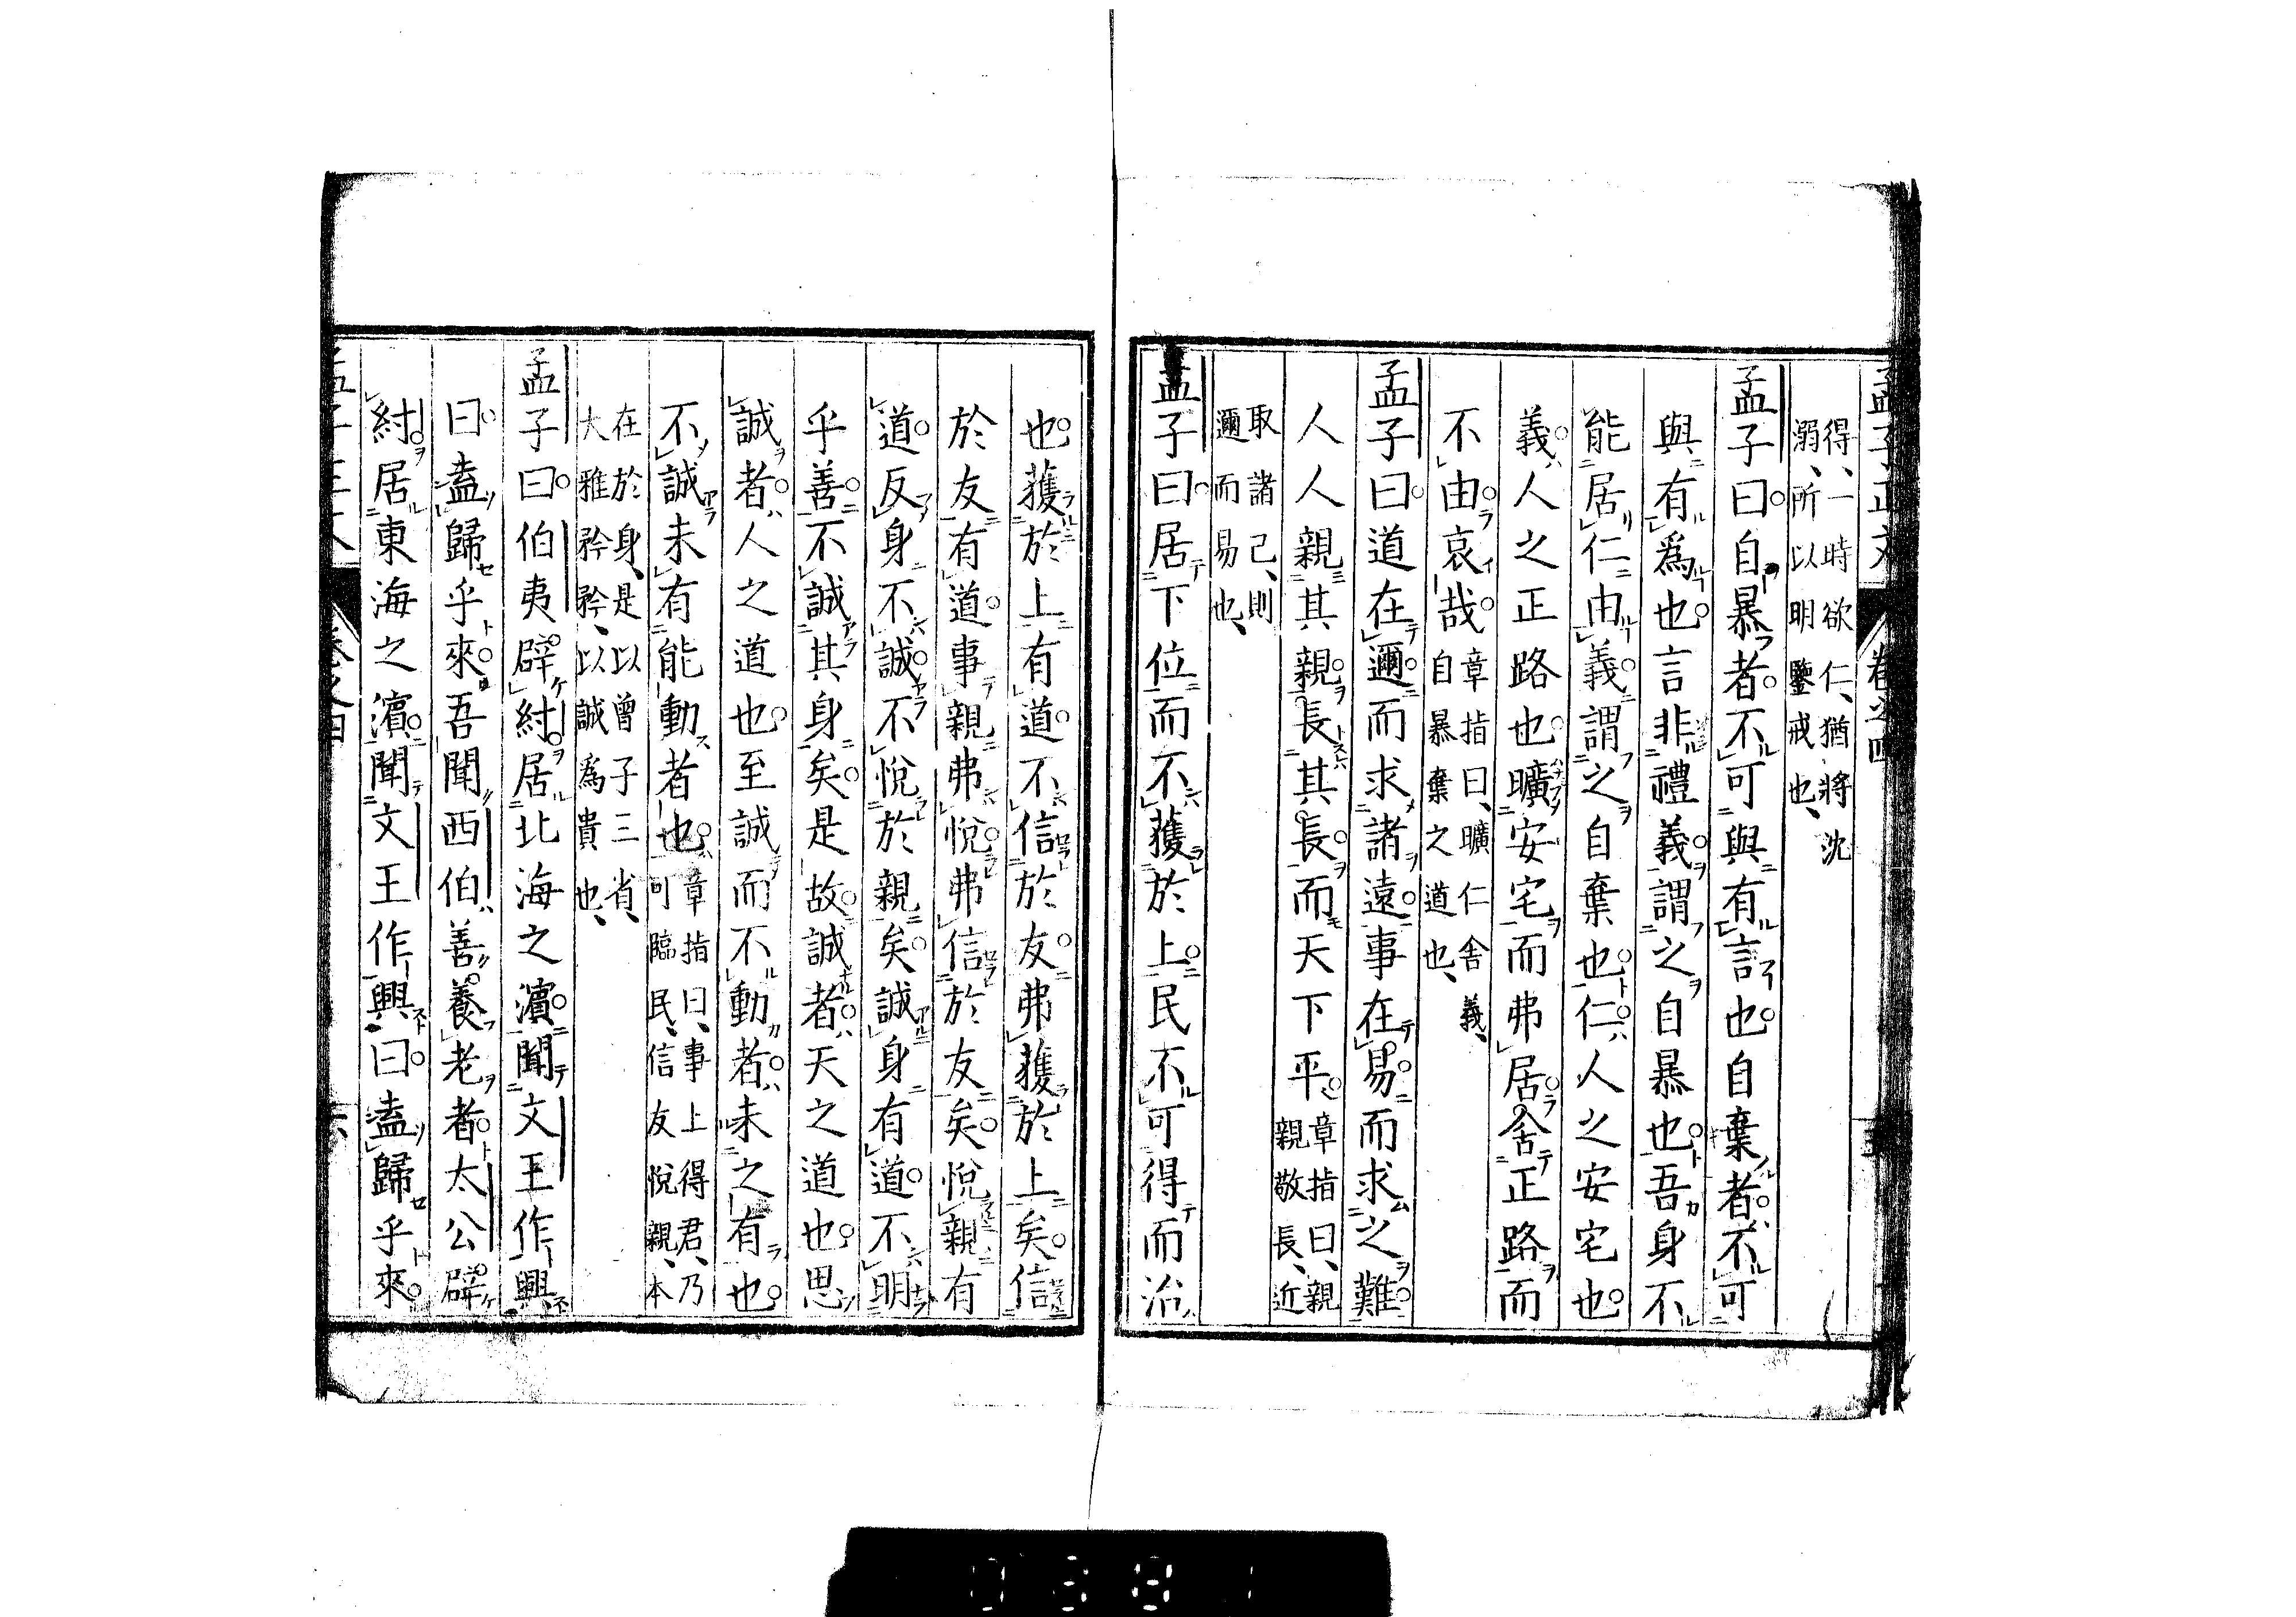 孟子正文 卷之四
得、一時欲仁、猶將沈
溺、所以明鑒戒也、
孟子曰自暴者不可與有言也自棄者不可
與有爲也言非禮義謂之自暴也吾身不
能居仁由義謂之自棄也仁人之安宅也
義人之正路也曠安宅而弗居舍正路而
不由哀哉
章指曰、曠仁舍義、
自暴棄之道也、
孟子曰道在邇而求諸遠事在易而求之難
人人親其親長其長而天下平
章指曰、親
親敬長、近
取諸己、則
邇而易也、
孟子曰居下位而不獲於上民不可得而治
也獲於上有道不信於友弗獲於上矣信
於友有道事親弗悅弗信於友矣悅親有
道反身不誠不悅於親矣誠身有道不明
乎善不誠其身矣是故誠者天之道也思
誠者人之道也至誠而不動者未之有也
不誠未有能動者也
章指曰、事上得君、乃
可臨民、信友悅親、本
在於身、是以曾子三省、
大雅矜矜、以誠爲貴也、
孟子曰伯夷辟紂居北海之濱聞文王作興
曰盍歸乎來吾聞西伯善養老者太公辟
紂居東海之濱聞文王作興曰盍歸乎來